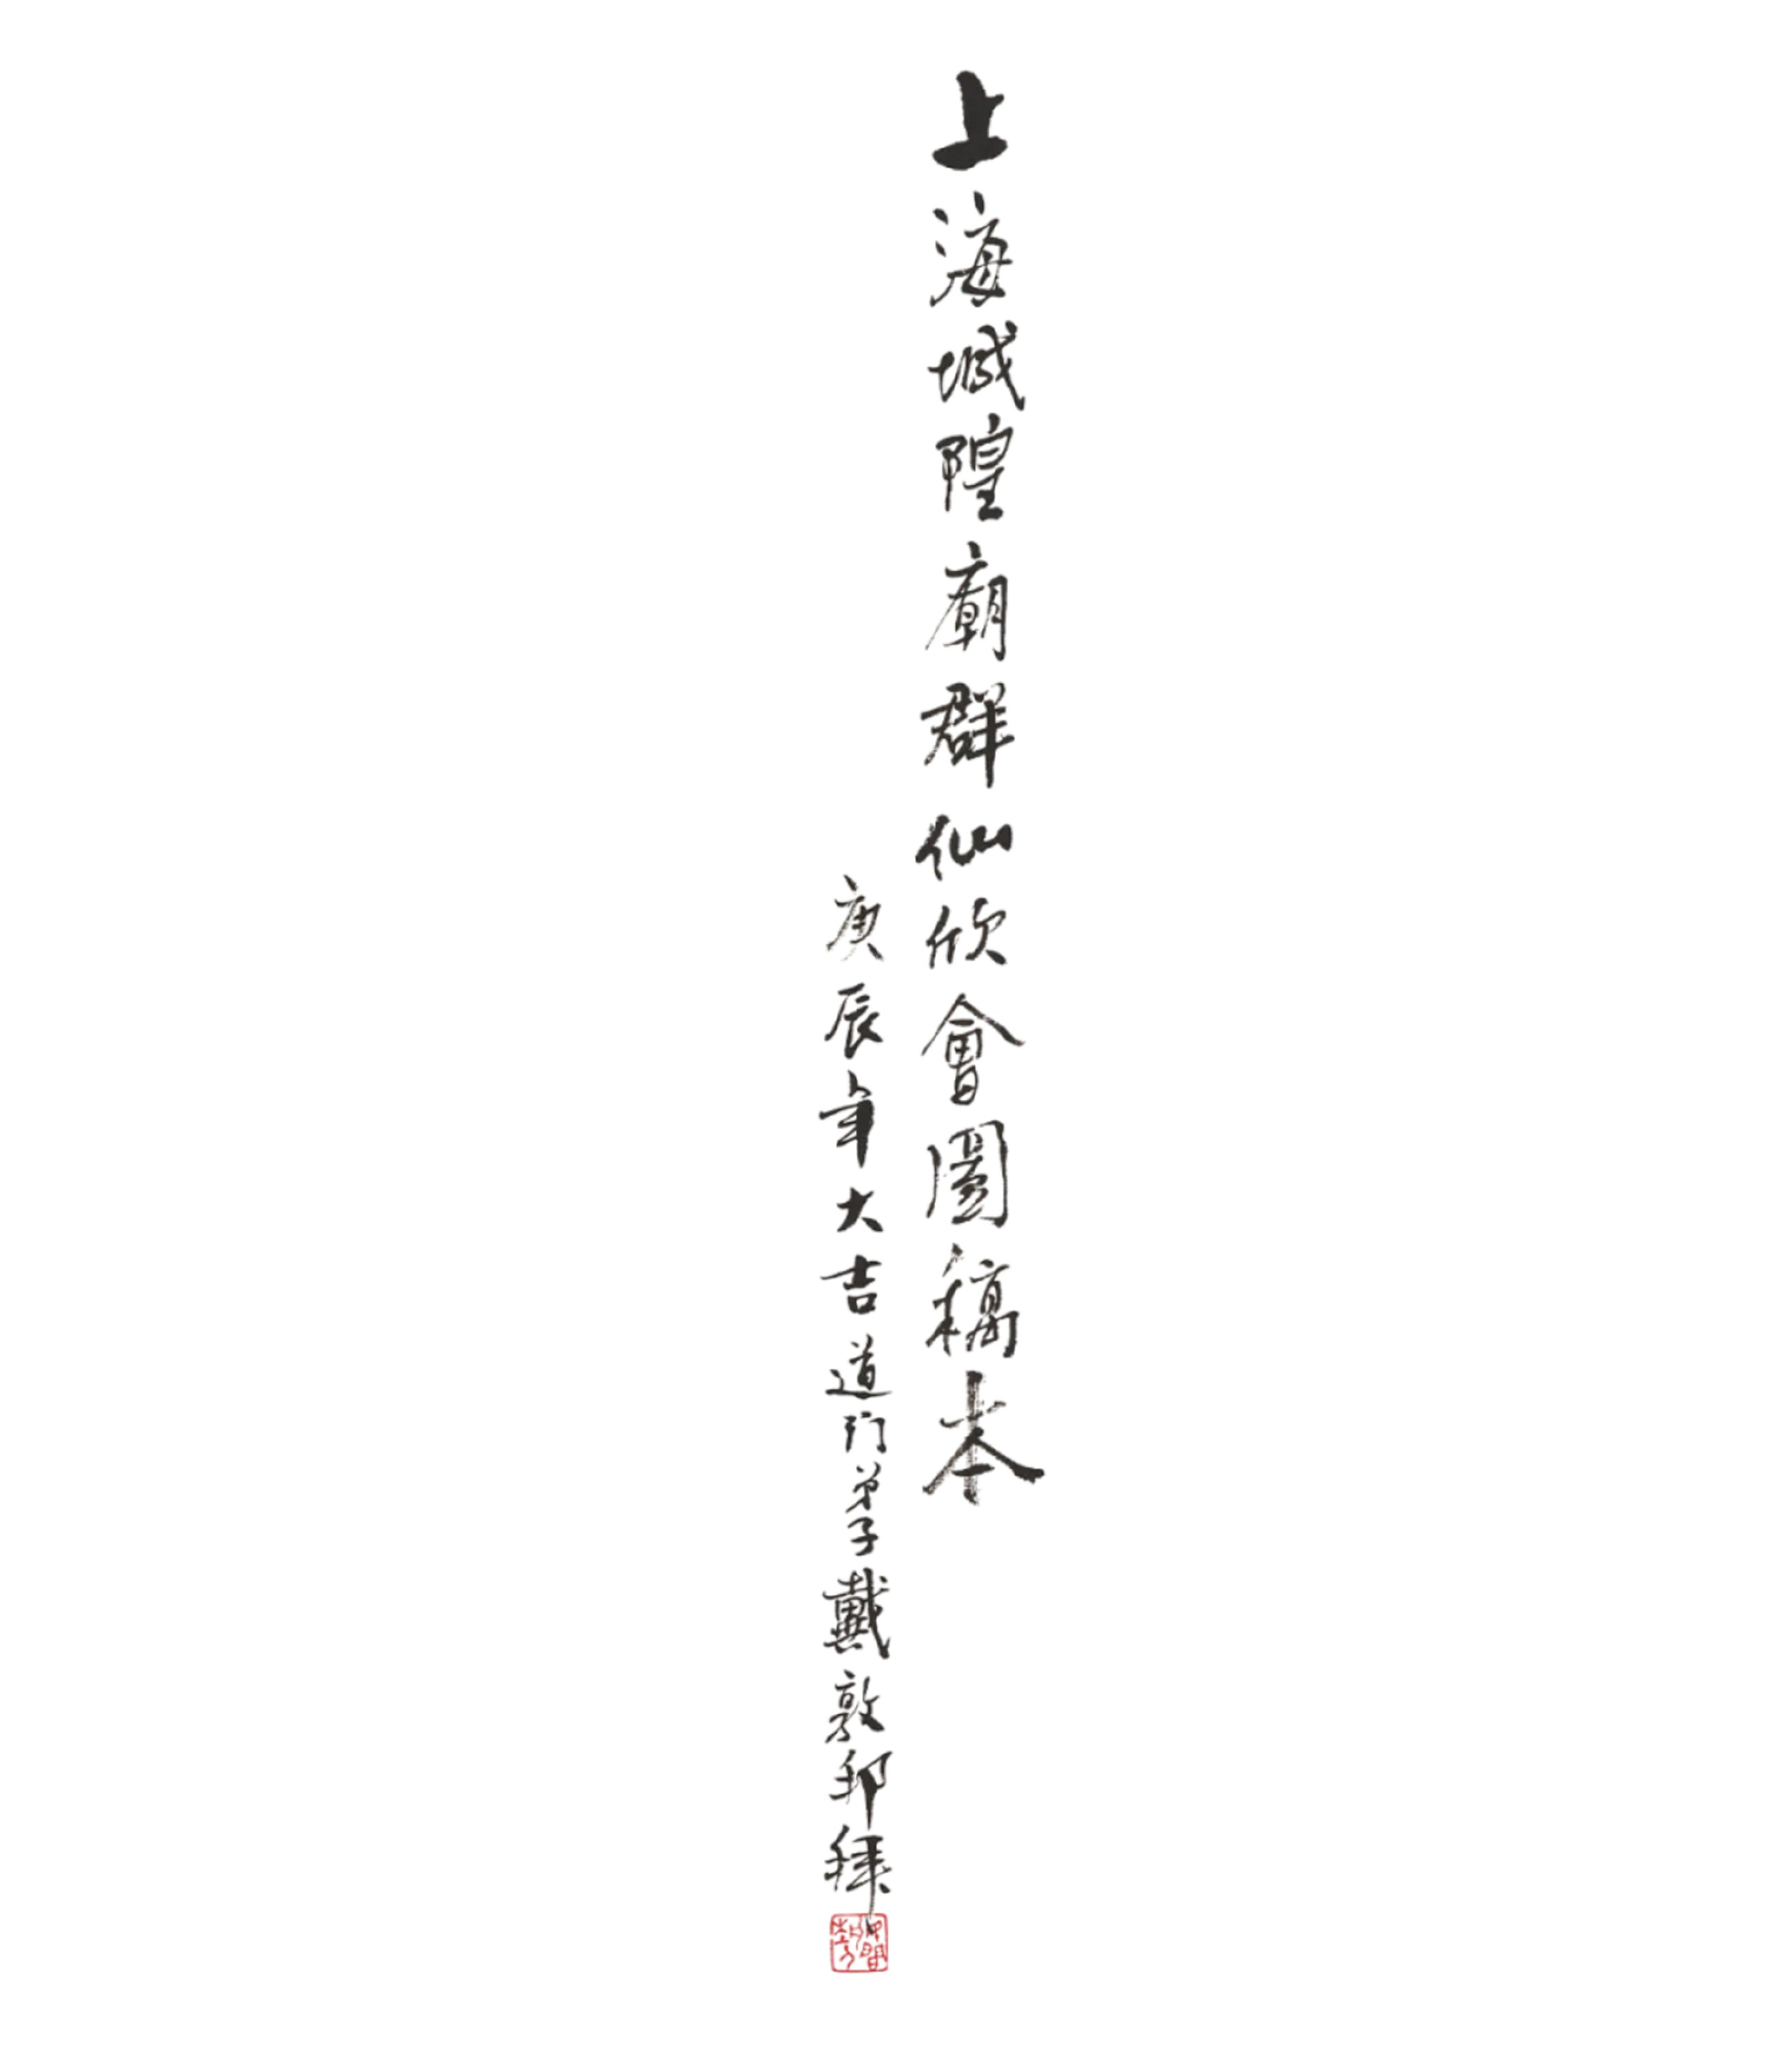 上海城隍廟群仙欣會圖稿本
庚辰年大吉道门弟子戴敦邦拜